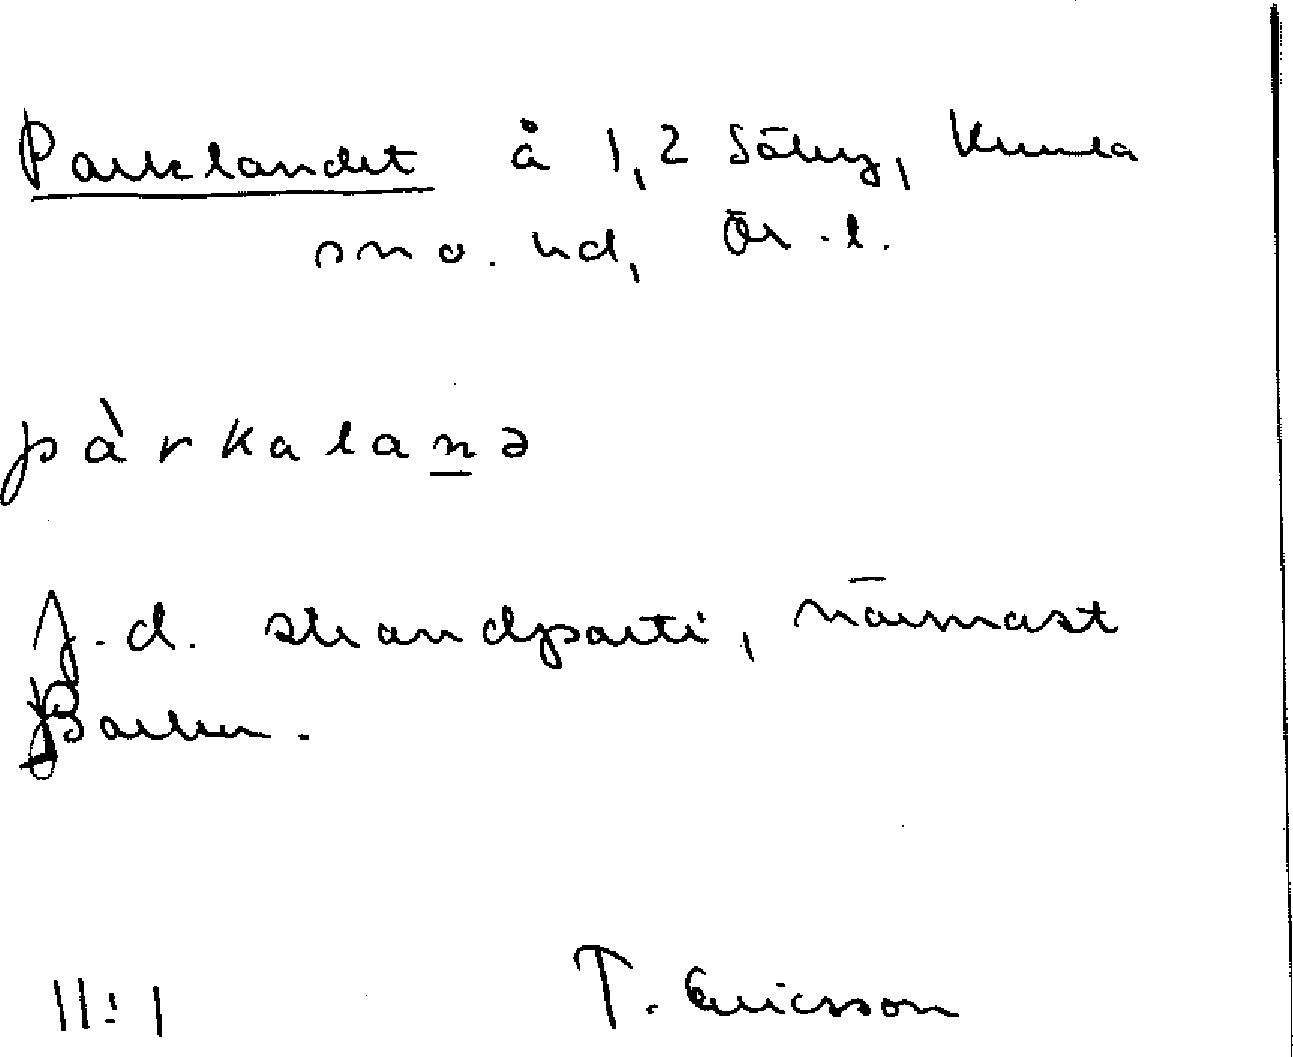 Parklandet å 1,2 Säby, Kumla
sn o. hd, Ör. l.
pàrkalanə
J. d. strandparti, närmast
Parken.
11:1 T. Ericsson